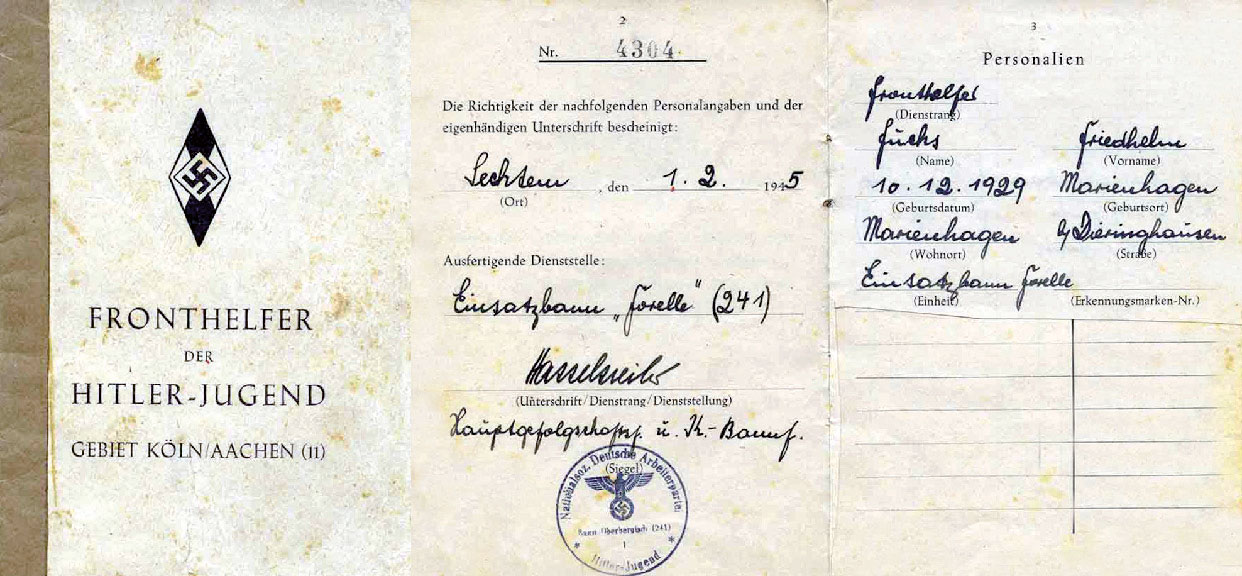 FRONTHELFER
DER
HITLER-JUGEND
GEBIET KÖLN/AACHEN (11)
2
Nr. 4304
Die Richtigkeit der nachfolgenden Personalangaben und der
eigenhändigen Unterschrift bescheinigt:
Sechtem, den 1. 2. 1945
(Ort)
Ausfertigende Dienststelle:
Einsatzbann „Forelle" (241)
(Unterschrift/Dienstrang/Dienststellung)
Hauptgefolgschaftsf. u. K.-Bannf.
(Siegel)
Nationalsoz. Deutsche Arbeiterpartei
Bann Oberbergisch (241)
1
Hitler-Jugend
3
Personalien
Fronthelfer
(Dienstrang)
Fuchs Friedhelm
(Name) (Vorname)
10.12.1929 Marienhagen
(Geburtsdatum) (Geburtsort)
Marienhagen b/Dieringhausen
(Wohnort) (Straße)
Einsatzbann Forelle
(Einheit) (Erkennungsmarken-Nr.)